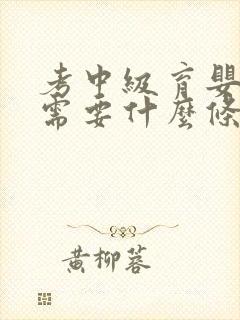 考中級育嬰
需要什麼條
黃柳蓉